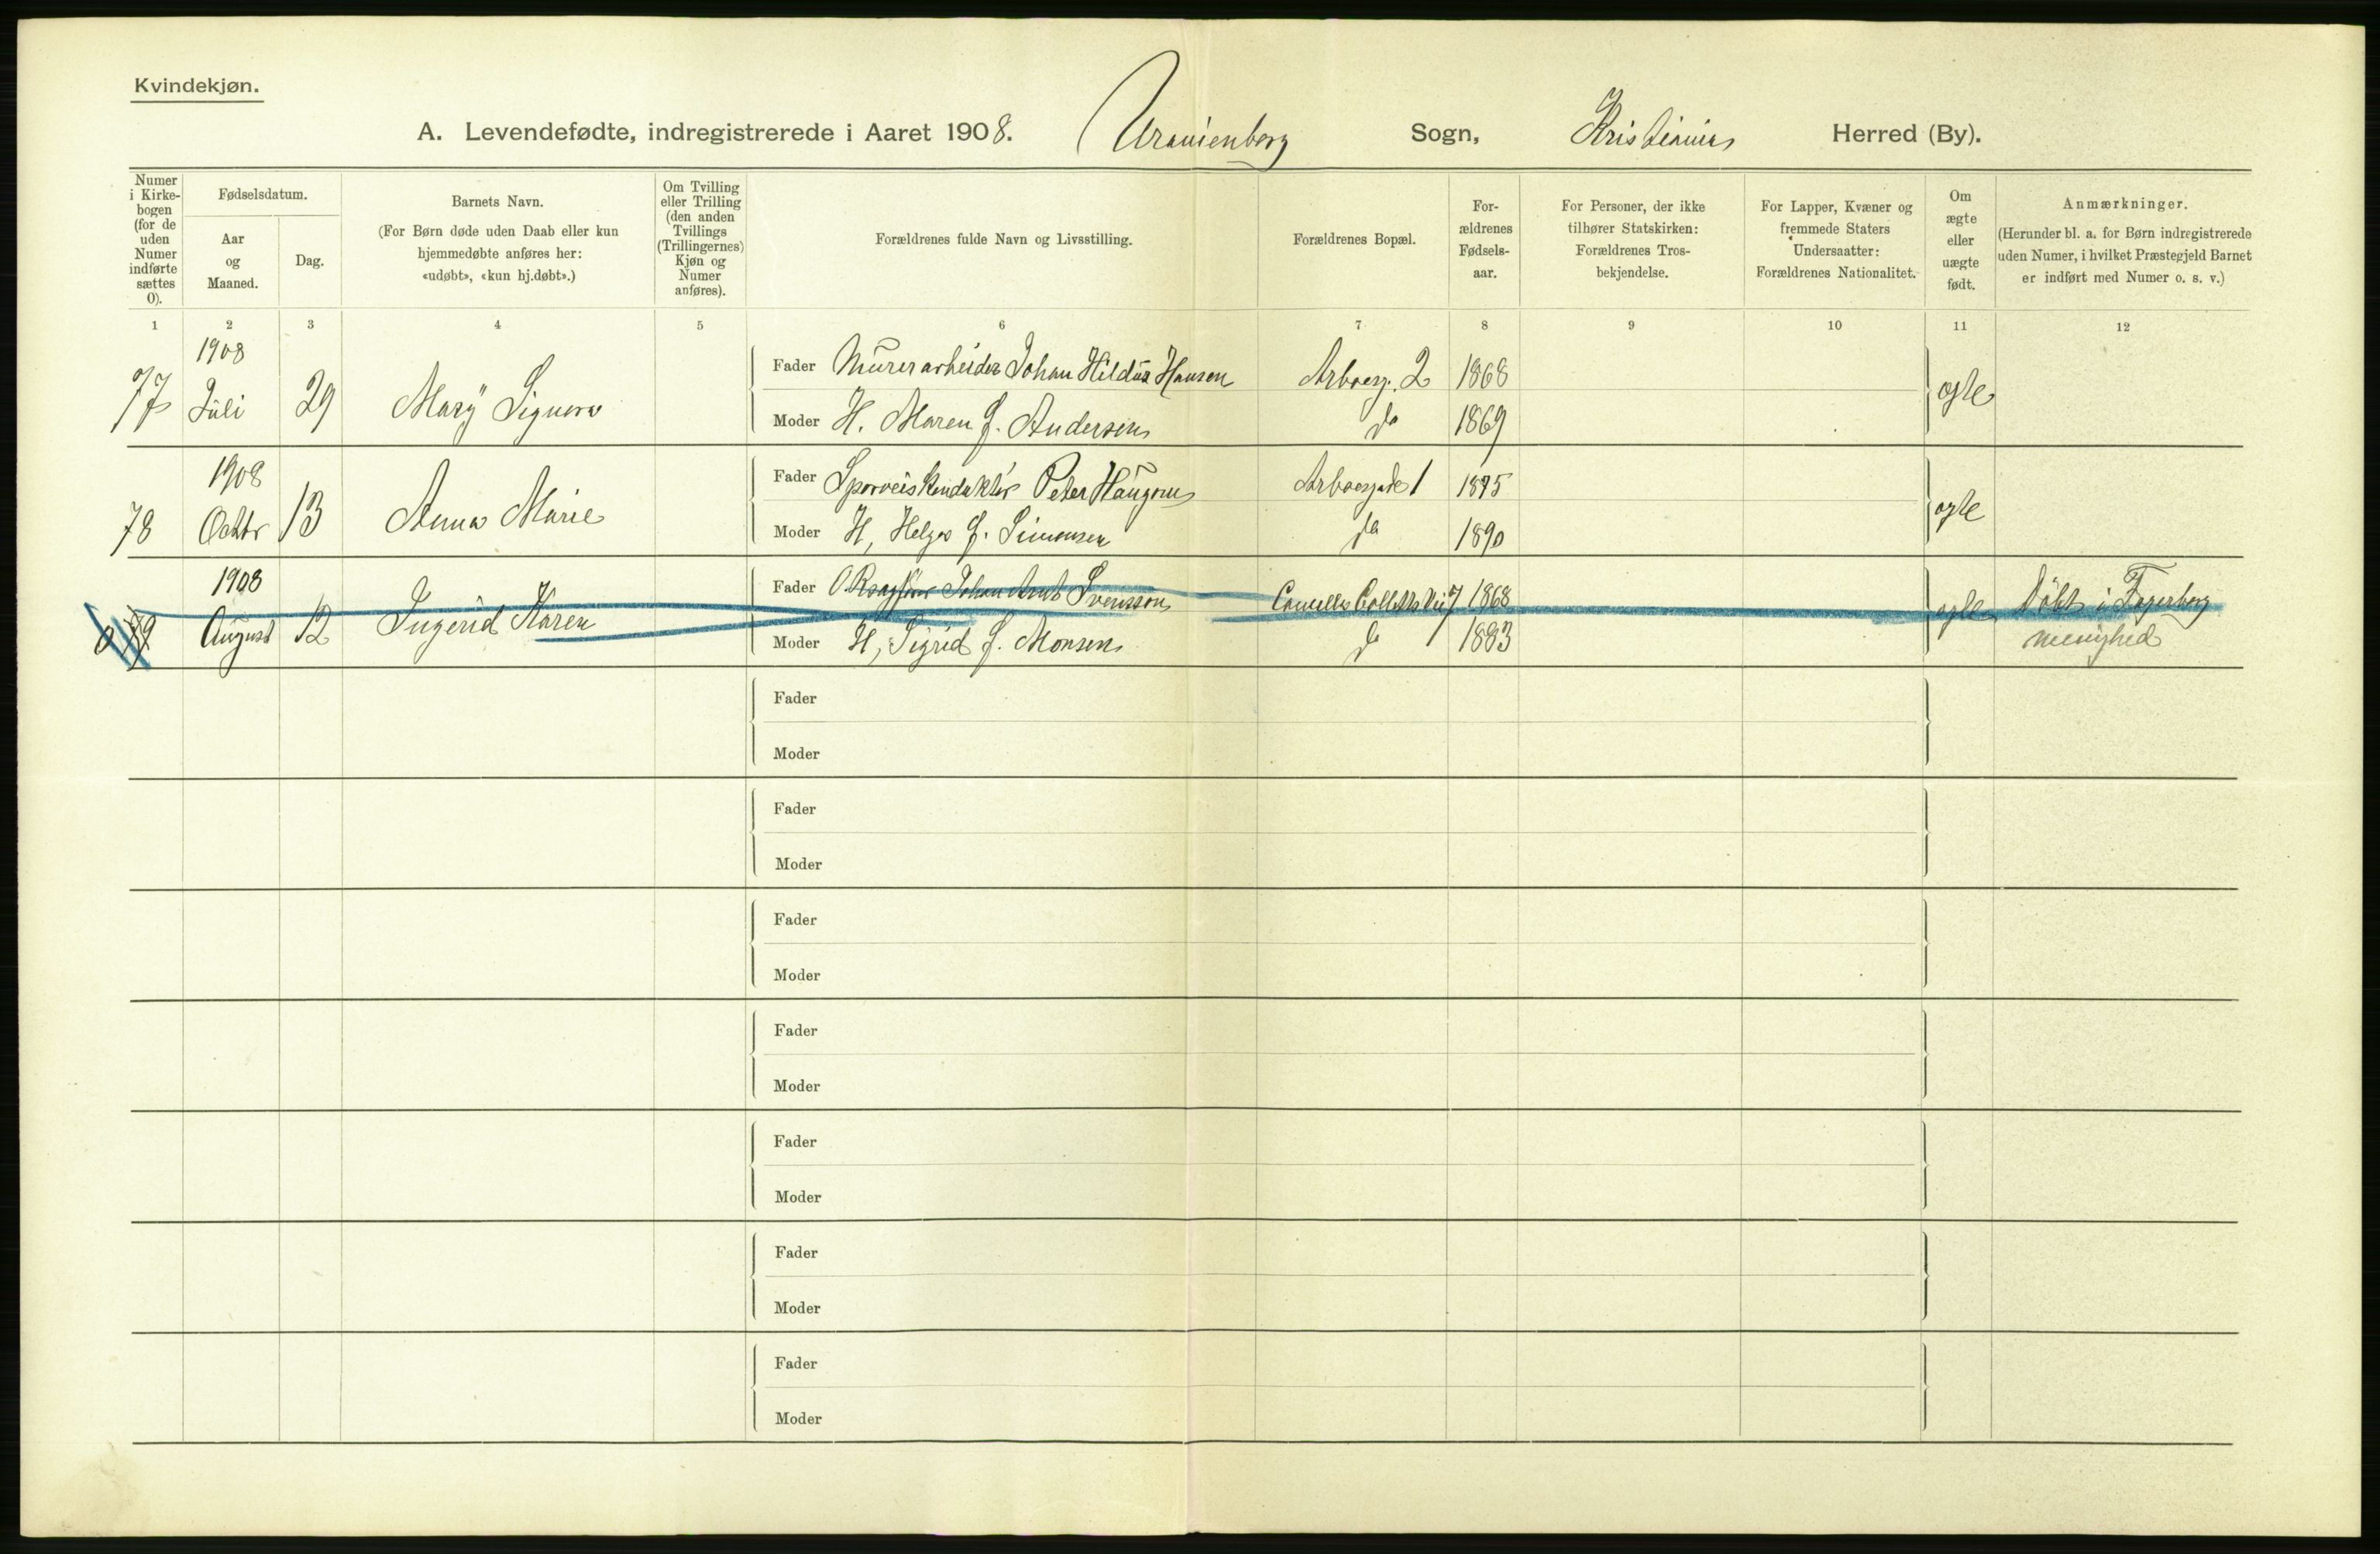 Kvindekjøn.
A. Levendefødte, indregistrerede i Aaret 1908. Uranienborg Sogn, Kristiania Herred (By).
Numer
i Kirke-
bogen
(for de
uden
Numer
indførte
sættes
0).
Fødselsdatum.
Aar
og
Maaned.
Dag.
Barnets Navn.
(For Børn døde uden Daab eller kun
hjemmedøbte anføres her:
«udøbt», «kun hj.døbt».)
Om Tvilling
eller Trilling
(den anden
Tvillings
(Trillingernes)
Kjøn og
Numer
anføres).
Forældrenes fulde Navn og Livsstilling.
Forældrenes Bopæl.
For-
ældrenes
Fødsels-
aar.
For Personer, der ikke
tilhører Statskirken:
Forældrenes Tros-
bekjendelse.
For Lapper, Kvæner og
fremmede Staters
Undersaatter:
Forældrenes Nationalitet.
Om
ægte
eller
uægte
født.
Anmærkninger.
(Herunder bl. a. for Børn indregistrerede
uden Numer, i hvilket Præstegjeld Barnet
er indført med Numer o. s. v.)
1 2 3 4 5 6 7 8 9 10 11 12
1908
77 Juli 29 Mary Signora
Fader Murerarbeider Johan Hildus Hansen Arboesg. 2 1868
Moder H. Maren f. Andersen do 1869
ægte
1908
78 Octbr 13 Anna Marie
Fader Sporveiskonduktør Peter Haugom Arboesgade 1 1875
Moder H, Helga f. Simonsen do 1890
ægte
1908
0 79 August 12 Ingerid Karen
Fader O.R.sagfører Johan Arnt Svensson Camilla Colletts Vei 7 1868
Moder H, Sigrid f. Monsen do 1883
ægte Døbt i Fagerborg
menighed
Fader
Moder
Fader
Moder
Fader
Moder
Fader
Moder
Fader
Moder
Fader
Moder
Fader
Moder